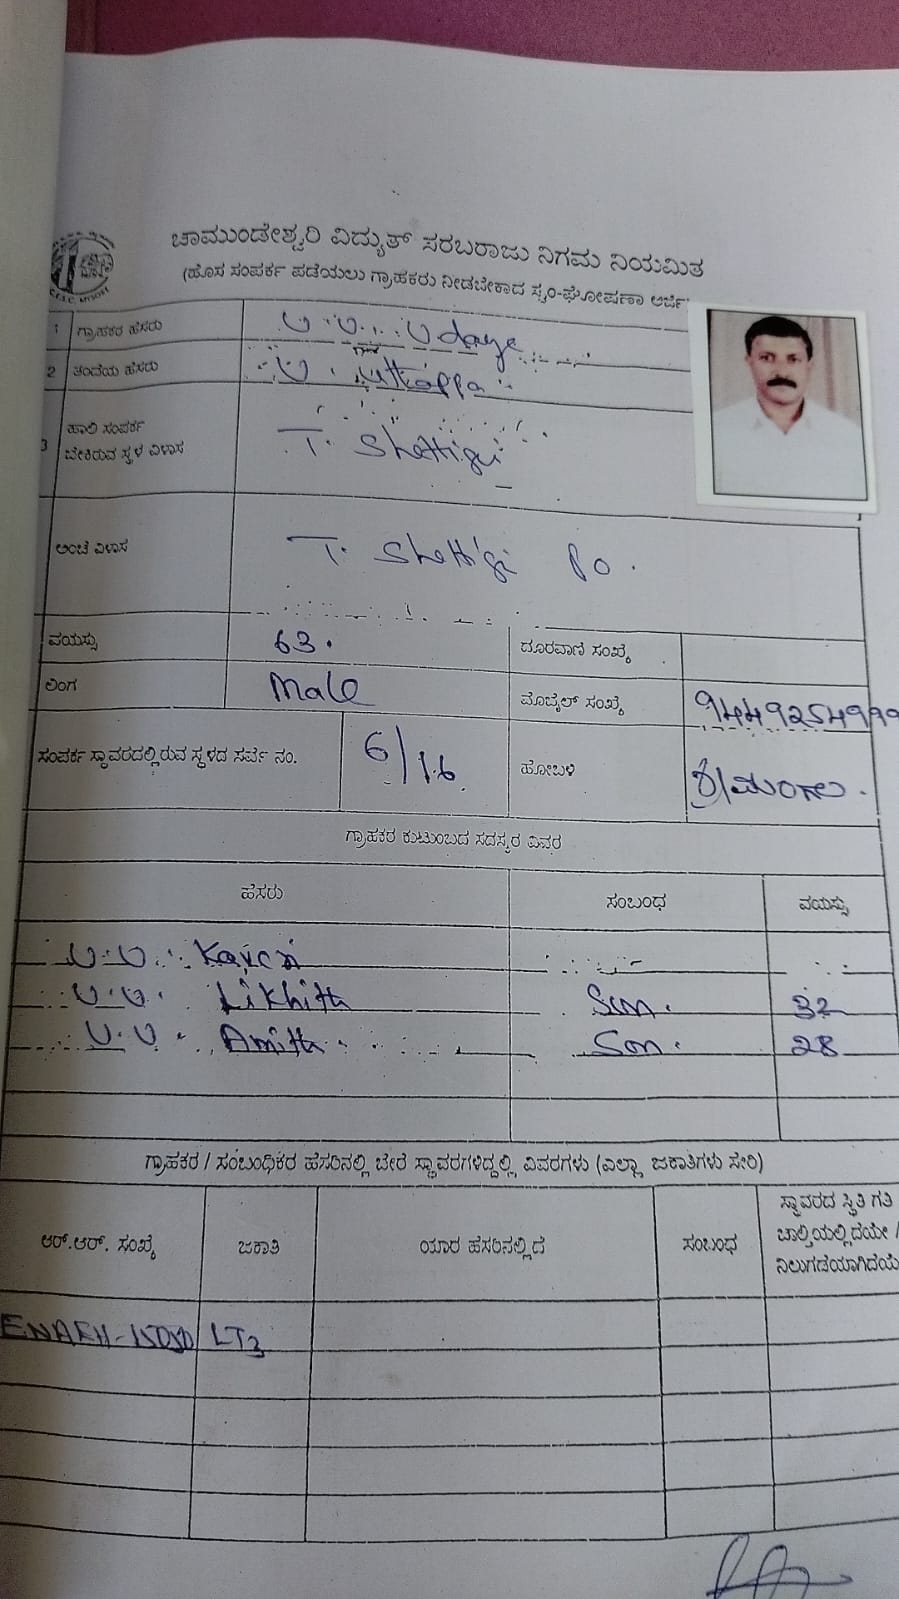 ಚಾಮುಂಡೇಶ್ವರಿ ವಿದ್ಯುತ್ ಸರಬರಾಜು ನಿಗಮ ನಿಯಮಿತ
(ಹೊಸ ಸಂಪರ್ಕ ಪಡೆಯಲು ಗ್ರಾಹಕರು ನೀಡಬೇಕಾದ ಸ್ವಂ-ಘೋಷಣಾ ಅರ್ಜಿ
C.E.S.C. MYSORE
1 ಗ್ರಾಹಕರ ಹೆಸರು U. U. Udaya
2 ತಂದೆಯ ಹೆಸರು U. Uthappa
3 ಹಾಲಿ ಸಂಪರ್ಕ
ಬೇಕಿರುವ ಸ್ಥಳ ವಿಳಾಸ T. Shettigei
ಅಂಚೆ ವಿಳಾಸ T. Shettigei PO.
ವಯಸ್ಸು 63. ದೂರವಾಣಿ ಸಂಖ್ಯೆ
ಲಿಂಗ Male ಮೊಬೈಲ್ ಸಂಖ್ಯೆ
ಸಂಪರ್ಕ ಸ್ಥಾವರದಲ್ಲಿರುವ ಸ್ಥಳದ ಸರ್ವೆ ನಂ. 6/16 ಹೋಬಳಿ ಶ್ರೀಮಂಗಲ.
ಗ್ರಾಹಕರ ಕುಟುಂಬದ ಸದಸ್ಯರ ವಿವರ
ಹೆಸರು ಸಂಬಂಧ ವಯಸ್ಸು
U.U. Kaveri
U.U. Likhith Son. 32
U.U. Amith Son. 28
ಗ್ರಾಹಕರ / ಸಂಬಂಧಿಕರ ಹೆಸರಿನಲ್ಲಿ ಬೇರೆ ಸ್ಥಾವರಗಳಿದ್ದಲ್ಲಿ ವಿವರಗಳು (ಎಲ್ಲಾ ಜಕಾತಿಗಳು ಸೇರಿ)
ಆರ್.ಆರ್. ಸಂಖ್ಯೆ ಜಕಾತಿ ಯಾರ ಹೆಸರಿನಲ್ಲಿದೆ ಸಂಬಂಧ ಸ್ಥಾವರದ ಸ್ಥಿತಿ ಗತಿ
ಚಾಲ್ತಿಯಲ್ಲಿದೆಯೇ /
ನಿಲುಗಡೆಯಾಗಿದೆಯೆ
LT3